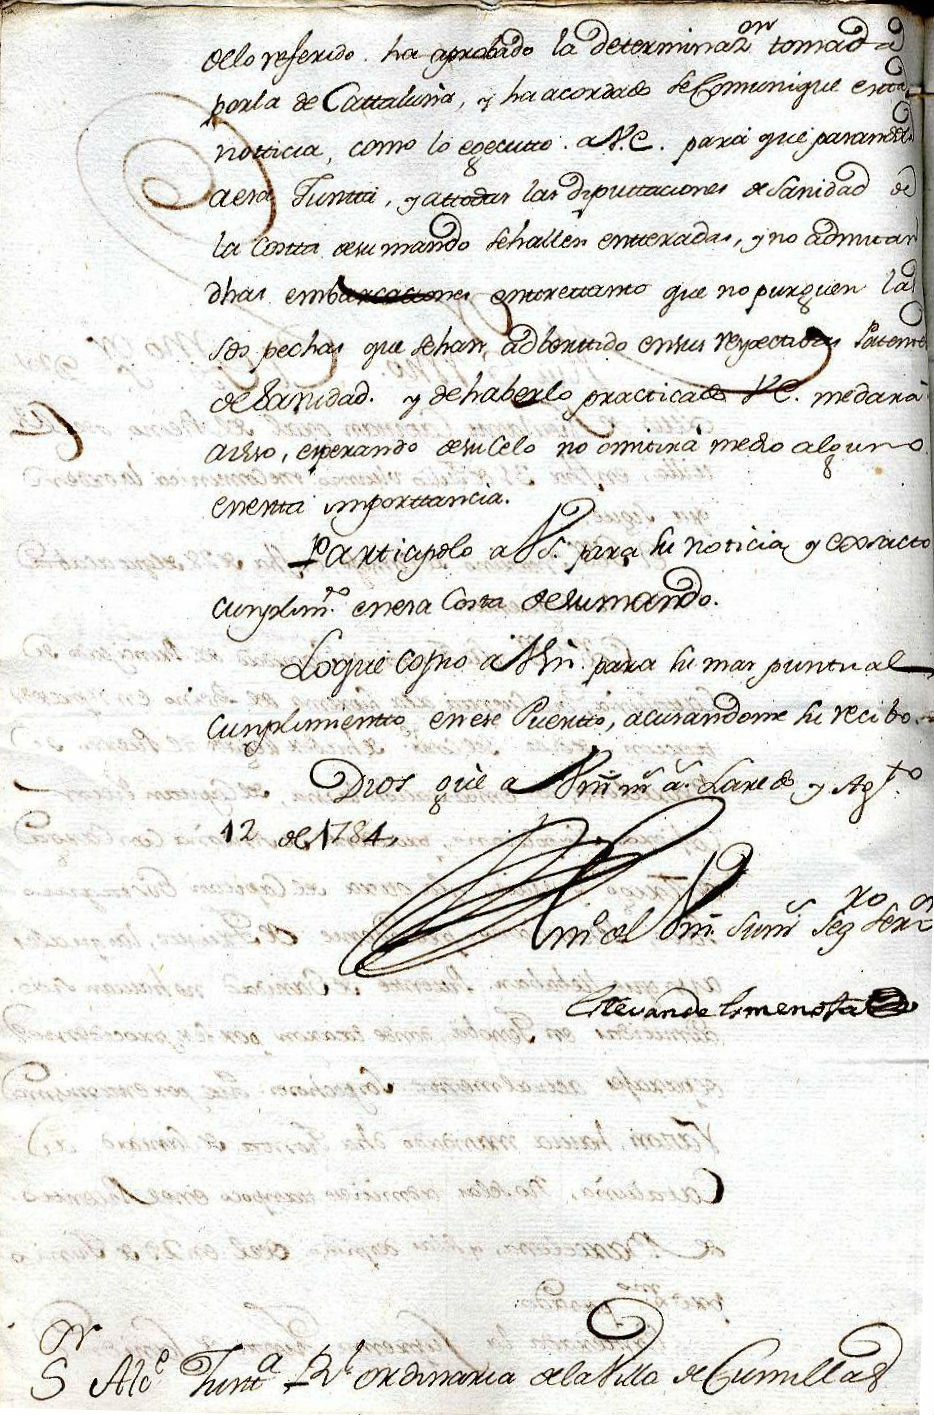 dello referido. ha aprobado la determinaz.on tomada
por la de Cattaluña, y ha acordado se Comunique esta
notticia, como lo egecutto. a V.E. para que
a esa Juntta, y a ttodas las diputtaciones de Sanidad de
la Costta de su mando se hallen entteradas, y no admitan
dhas embarcaciones entretanto que no purguen las
sospechas que se han adberttido en sus respectibas Patentes
de Sanidad. y de haberlo practicado V.E. me dará
aviso, esperando de su Celo no omitirá medio alguno
en esta importtancia.
Participolo a V.S. para su noticia y exacto
cumplim.to en esa Costa de su mando.
Lo que copio a Vm. para su mas punttual
Cumplimientto en ese Puertto, acusandome su recibo.
Dios gũe a Vm m.s a.s Laredo y Ag.to
12 de 1784,
de Vm. su seg.ro ser.or
S.r Alc.e Junt.a R.l ordinaria de la Villa de Cumillas